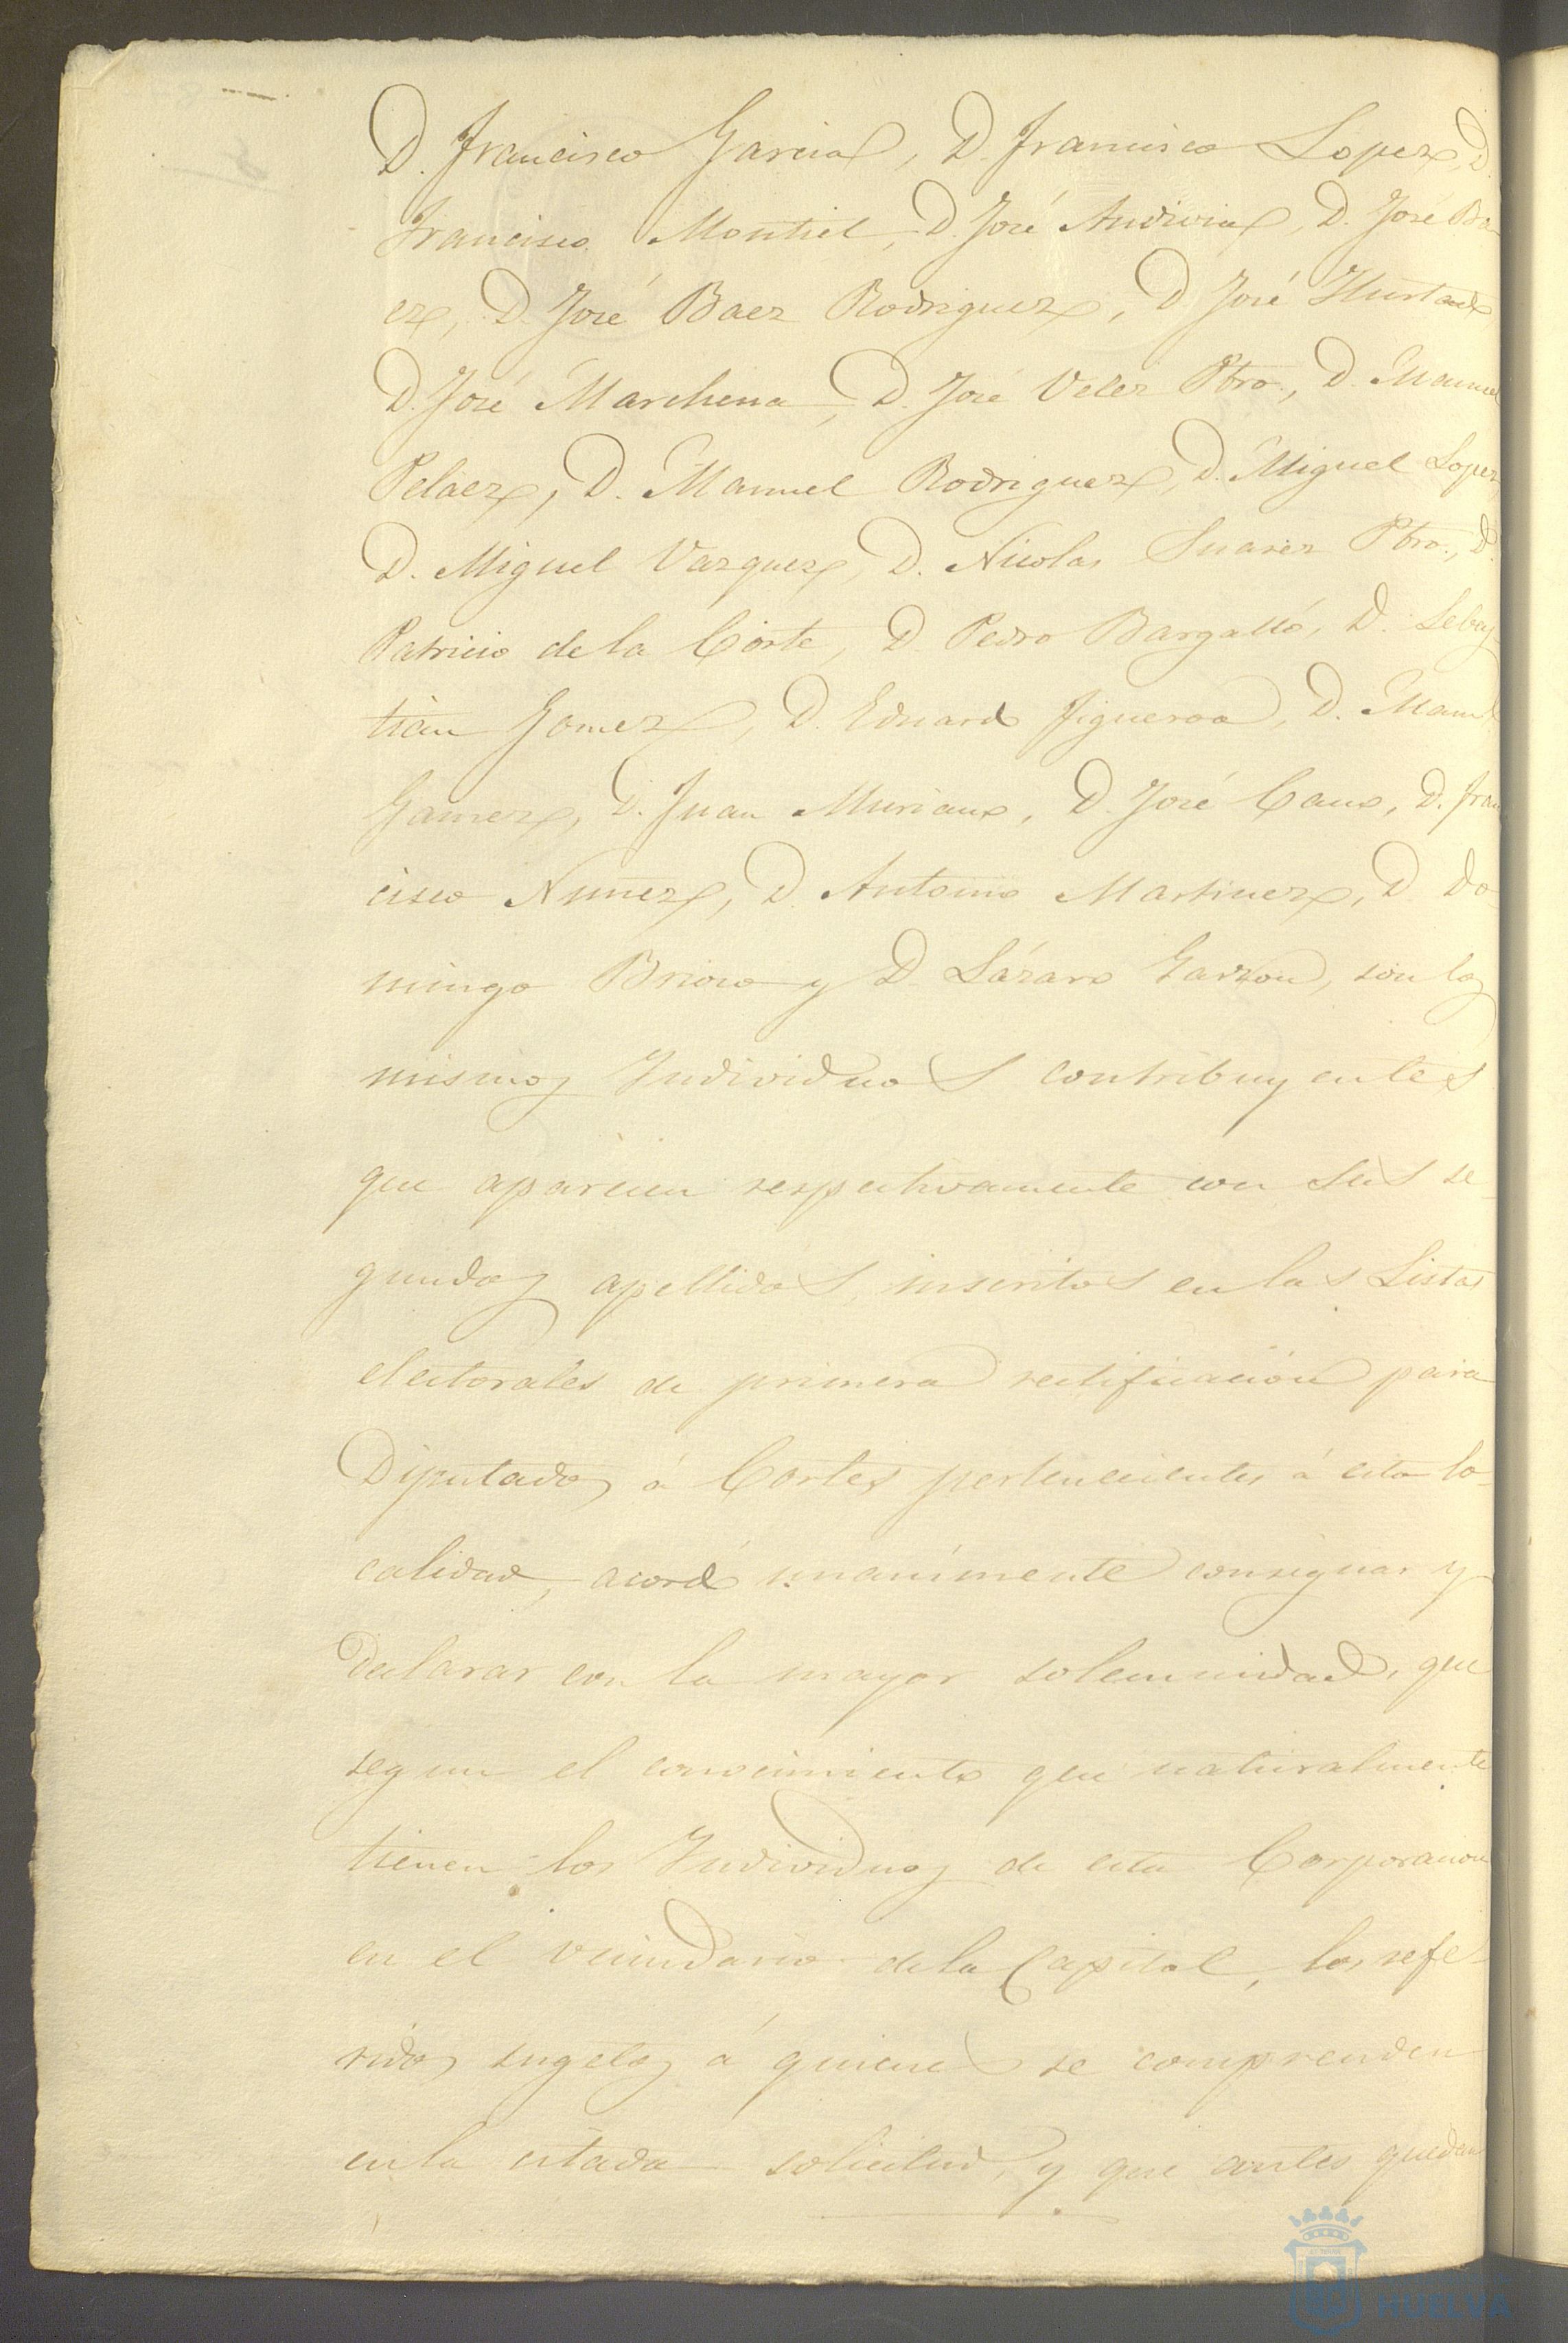 D. Francisco Garcia, D. Francisco Lopez, D.
Francisco Montiel, D. José Andivia, D. José Ba-
ez, D. José Baez Rodriguez, D José Hurtado
D. José Marchena, D. José Velez Pbro., D. Manuel
Pelaez, D. Manuel Rodriguez, D. Miguel Lopez,
D. Miguel Vazquez, D. Nicolas Suarez Pbro., D.
Patricio de la Corte, D. Pedro Bargalló, D. Sebas-
tian Gomez, D. Eduardo Figueroa, D. Manuel
Gamez, D. Juan Muriano, D. José Cano, D. Fran
cisco Nuñez, D. Antonio Martinez, D. Do-
mingo Brioso y D. Lázaro Garzon, son los
mismos Individuos contribuyentes
que aparecen respectivamente con sus se-
gundos apellidos, inscritos en las Listas
electorales de primera rectificacion para
Diputados á Cortes pertenecientes á esta lo-
calidad, acordó unanimente consignar y
declarar con la mayor solemnidad, que
segun el conocimiento que naturalmente
tienen los Individuos de esta Corporacion
en el vecindario de la Capital, los refe-
ridos sugetos á quienes se comprenden
en la citada solicitud, y que antes quedan
HUELVA